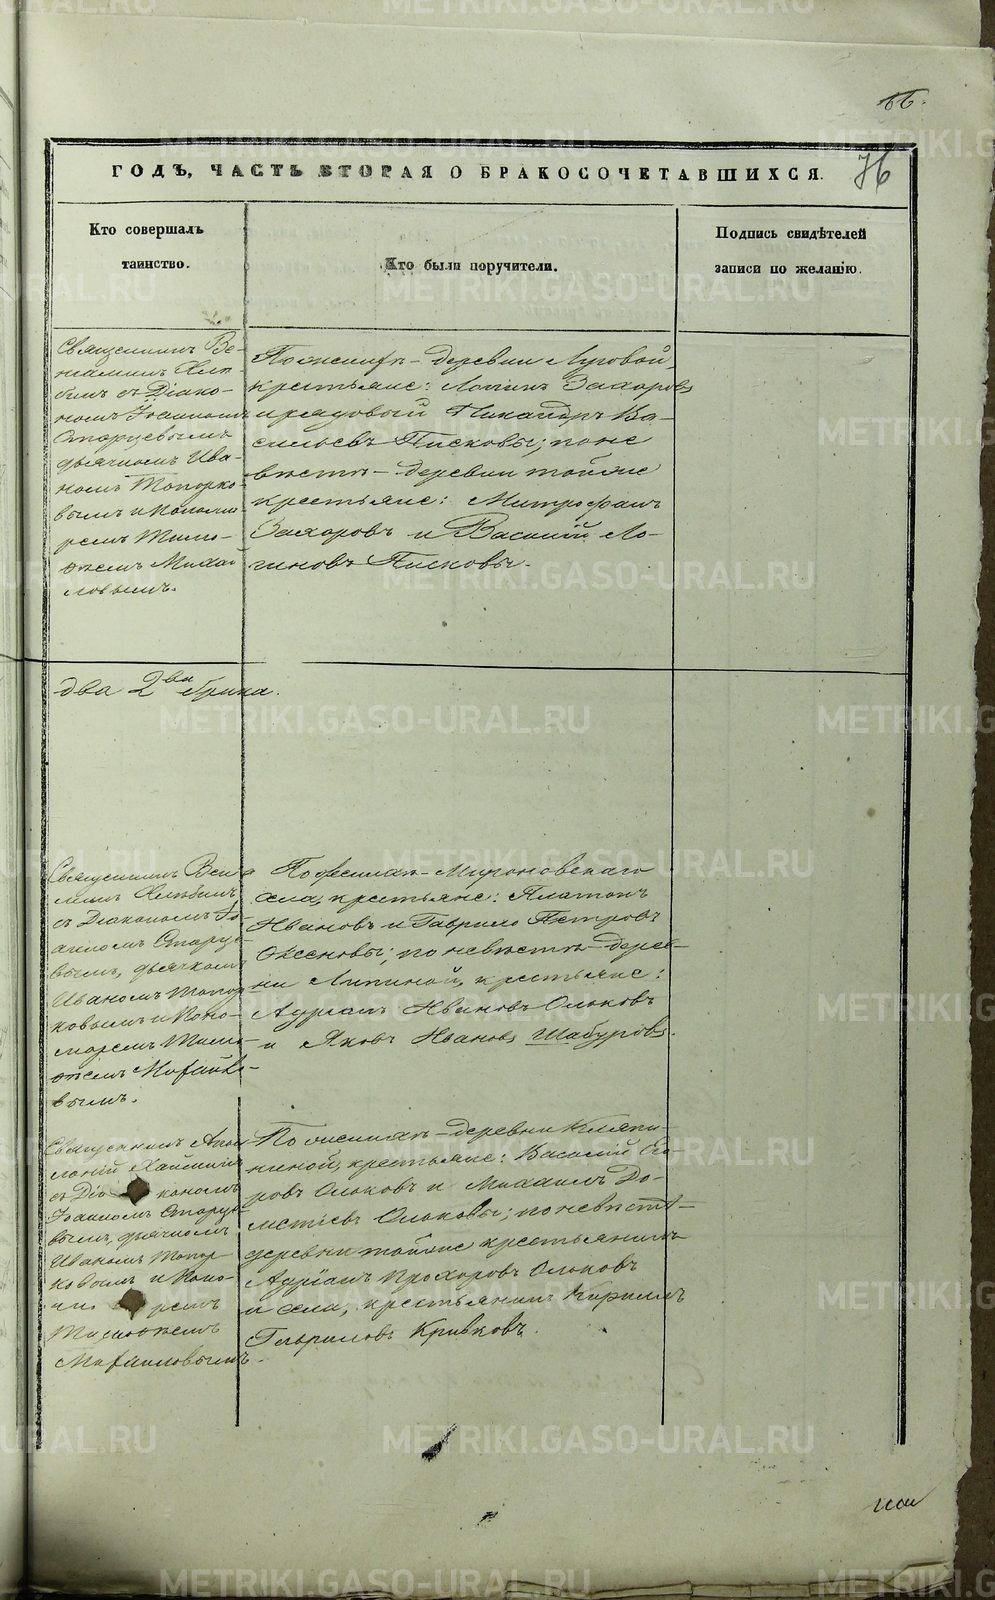 66.
76
ГОДЪ, ЧАСТЬ ВТОРАЯ О БРАКОСОЧЕТАВШИХСЯ.
Кто совершалъ
таинство.
Кто были поручители.
Подпись свидѣтелей
записи по желанію.
Священникъ Ве-
ніаминъ Хлы-
бинъ съ Діако-
номъ Іоанномъ
Старцевымъ
дьячкомъ Ива-
номъ Топорко-
вымъ и Понома-
ремъ Тимо-
ѳеемъ Михай
ловымъ.
По женихѣ - деревни Луговой,
крестьяне: Логинъ Захаровъ
и рядовый Никандръ Ва-
сильевъ Писковы; по не
вѣстѣ - деревни тойже
крестьяне: Митрофанъ
Захаровъ и Василій Ло-
гиновъ Писковы.
два 2ва брака.
Священникъ Веніа
минъ
съ Діакономъ Іо-
анномъ Старце-
вымъ, дьячкомъ
Иваномъ Топор
ковымъ и Поно-
маремъ Тимо-
ѳеемъ Михайло-
вымъ.
По женихѣ - Мироновскаго
села, крестьяне: Платонъ
Ивановъ и Гаврило Петровъ
Оксеновы; по невѣстѣ - дерев-
ни Липиной, крестьяне:
Адріанъ Ивановъ Ольковъ
и Яковъ Ивановъ Шабуровъ.
Священникъ Апол-
лоній
съ Діакономъ
Іоанномъ Старце-
вымъ, дьячкомъ
Иваномъ Топор-
ковымъ и Поно-
ремъ
Тимоѳеемъ
Михайловымъ.
По женихѣ - деревни
крестьяне: Василій Его-
ровъ Ольковъ и Михаилъ До-
метіевъ Ольковы; по невѣстѣ -
деревни тойже крестьянинъ
Адріанъ Прохоровъ Ольковъ
и села, крестьянинъ Кириллъ
Гавриловъ Кривковъ.
METRIKI.GASO-URAL.RU